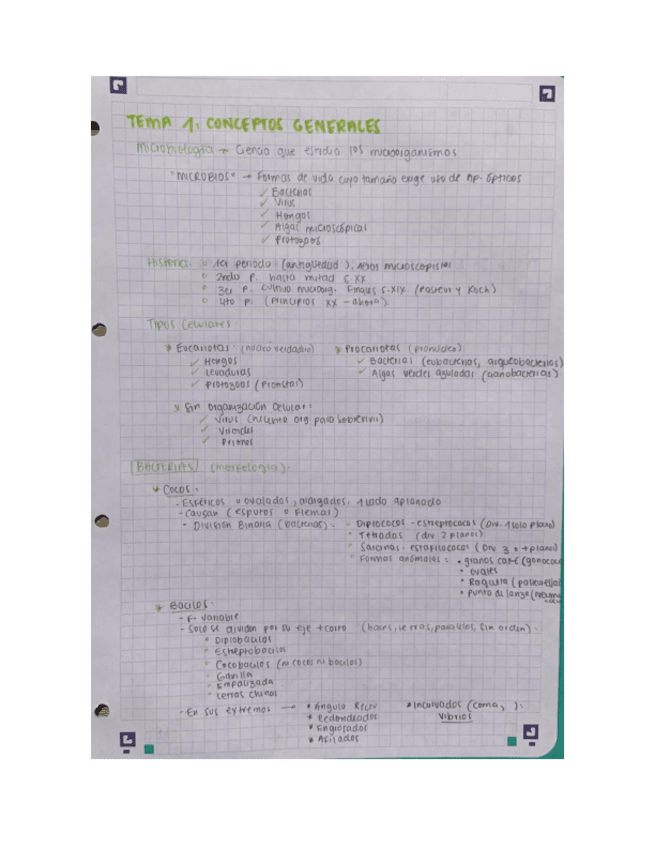 TEMA 1: CONCEPTOS GENERALES
Microbiología → Ciencia que estudia los microorganismos
"MICROBIOS" → Formas de vida cuyo tamaño exige uso de ap. ópticos
✓ Bacterias
✓ Virus
✓ Hongos
✓ Algas microscópicas
✓ Protozoos
Historia: 1er periodo (antigüedad), 1eros microscopistas
2ndo p. hasta mitad s. XX
3er p. cultivo microorg. Finales s. XIX (Pasteur y Koch)
4to p. (Principios XX - ahora)
Tipos Celulares:
Eucariotas: (núcleo verdadero)
✓ Hongos
✓ Levaduras
✓ Protozoos (Protistas)
Procariotas (pronúcleo)
✓ Bacterias (eubacterias, arqueobacterias)
✓ Algas verdes azuladas (cianobacterias)
Sin organización celular:
✓ Virus (necesita org. para sobrevivir)
✓ Viroides
✓ Priones
BACTERIAS (morfología):
Cocos:
- Esféricos u ovalados, alargados, 1 lado aplanado
- Causan (esputos o flemas)
- División Binaria (bacterias):
Diplococos - estreptococos (Div. 1 solo plano)
Tetradas (div 2 planos)
Sarcinas - estafilococos (Div 3 o + planos)
Formas anómalas: • granos café (gonococo
• ovales
• Raqueta
• Punta de lanza (neumo
Bacilos:
- F. variable
- Solo se dividen por su eje + corto (haces, letras, paralelos, sin orden).
Diplobacilos
Estreptobacilos
Cocobacilos (ni cocos ni bacilos)
Gavilla
Empalizada
Letras chinas
- En sus extremos → * Ángulo Recto
* Redondeados
* Engrosados
* Afilados
* Incurvados (coma, ):
Vibrios